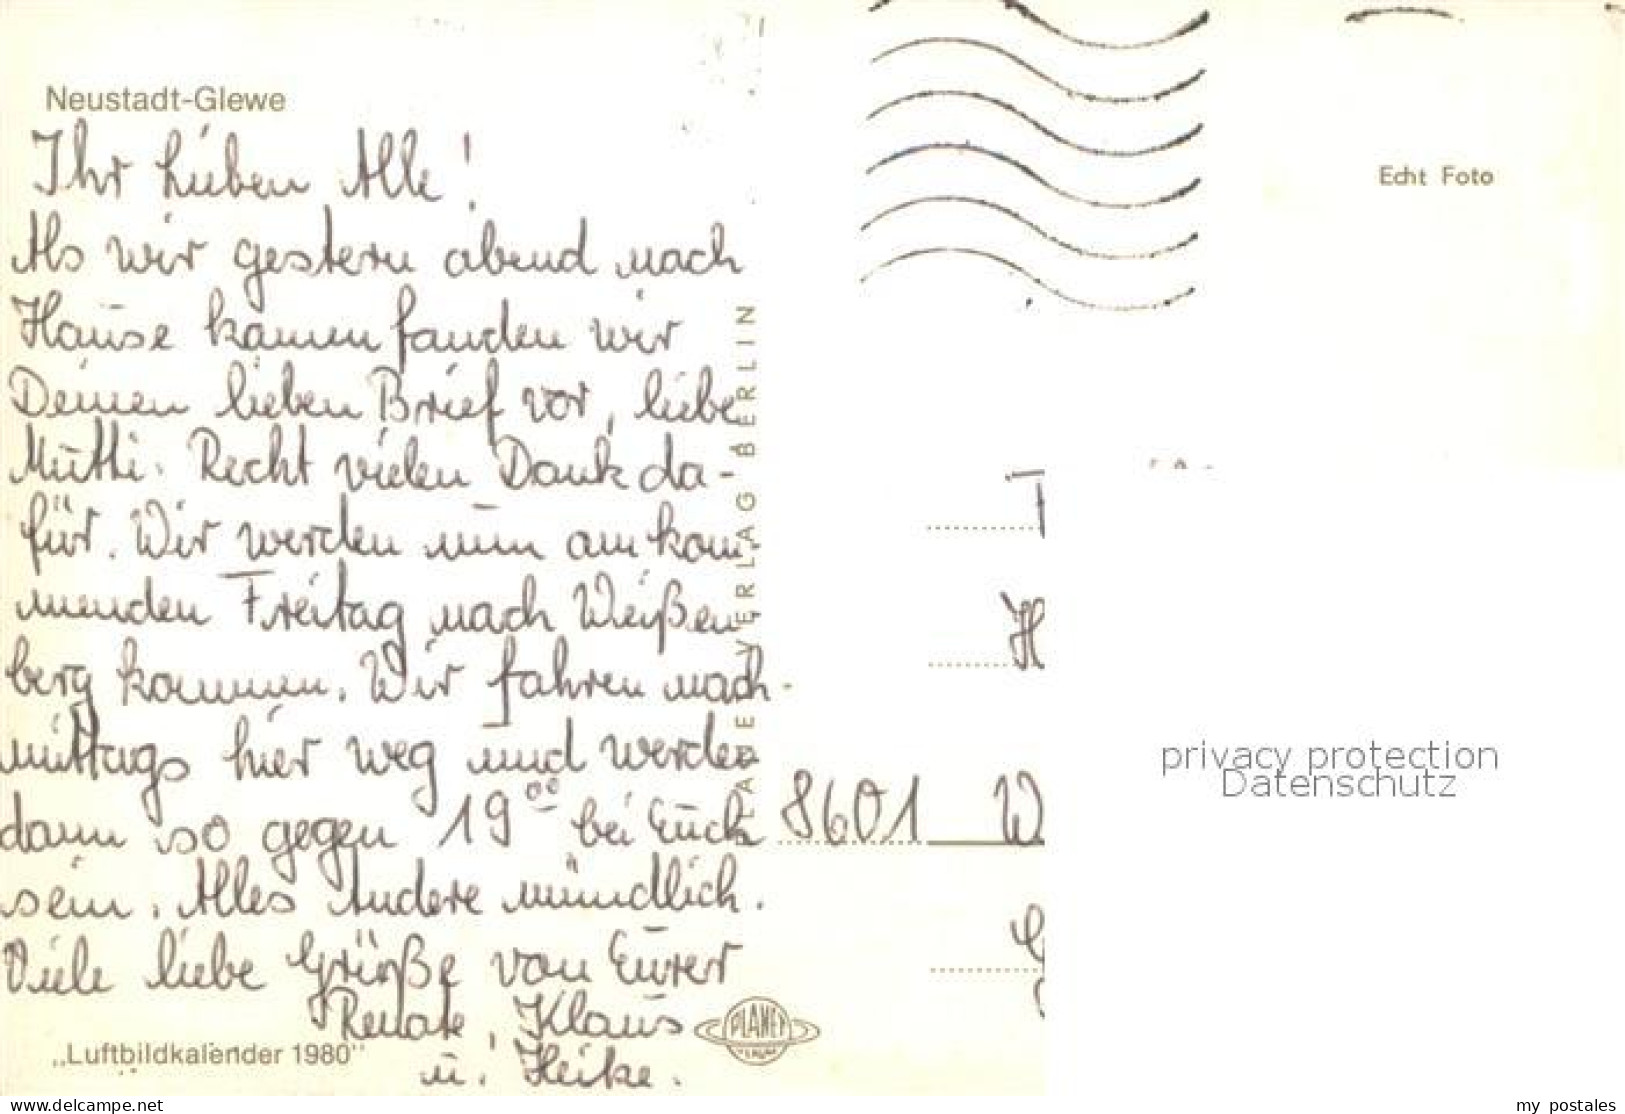 Neustadt-Glewe
Ihr Lieben Alle!
Als wir gestern abend nach
Hause kamen fanden wir
Deinen lieben Brief vor, liebe
Mutti. Recht vielen Dank da-
für. Wir werden nun am kom-
menden Freitag nach Weißen-
berg kommen. Wir fahren nach-
mittags hier weg und werden
dann so gegen 19⁰⁰ bei Euch
sein. Alles Andere mündlich.
Viele liebe Grüße von Eurer
Renate, Klaus
u. Heike.
„Luftbildkalender 1980"
PLANET VERLAG BERLIN
PLANET
VERLAG
Echt Foto
H
8601 W
privacy protection
Datenschutz
www.delcampe.net
my_postales